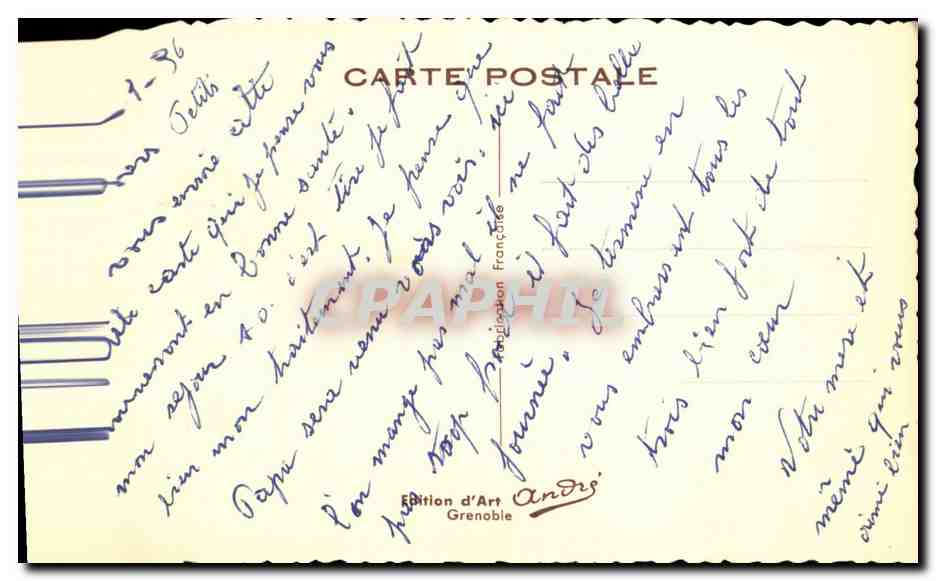 CARTE POSTALE
1-96
Petits
vous envoie cette
carte qui je pense vous
en bonne santé.
mon sejour c'est tire je fait
bien mon traitement. Je pense que
Papa sera venu vous voir. ici
l'on mange pas mal il ne fait
pas trop froid et fait des belle
journée. Je termine en
vous embrassant tous les
trois bien fort de tout
mon cœur
Votre mere et
mémé qui vous
aime bien
Fabrication Française
CPAPHIL
Edition d'Art André
Grenoble